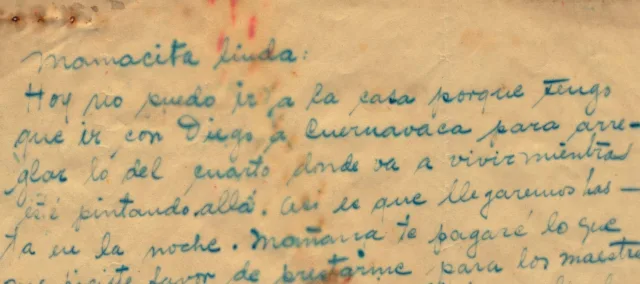 Mamacita linda:
Hoy no puedo ir a la casa porque tengo
que ir con Diego a Cuernavaca para arre-
glar lo del cuarto donde va a vivir mientras
esté pintando allá. Asi es que llegaremos has-
ta en la noche. Mañana te pagaré lo que
que hiciste favor de prestarme para los maestr